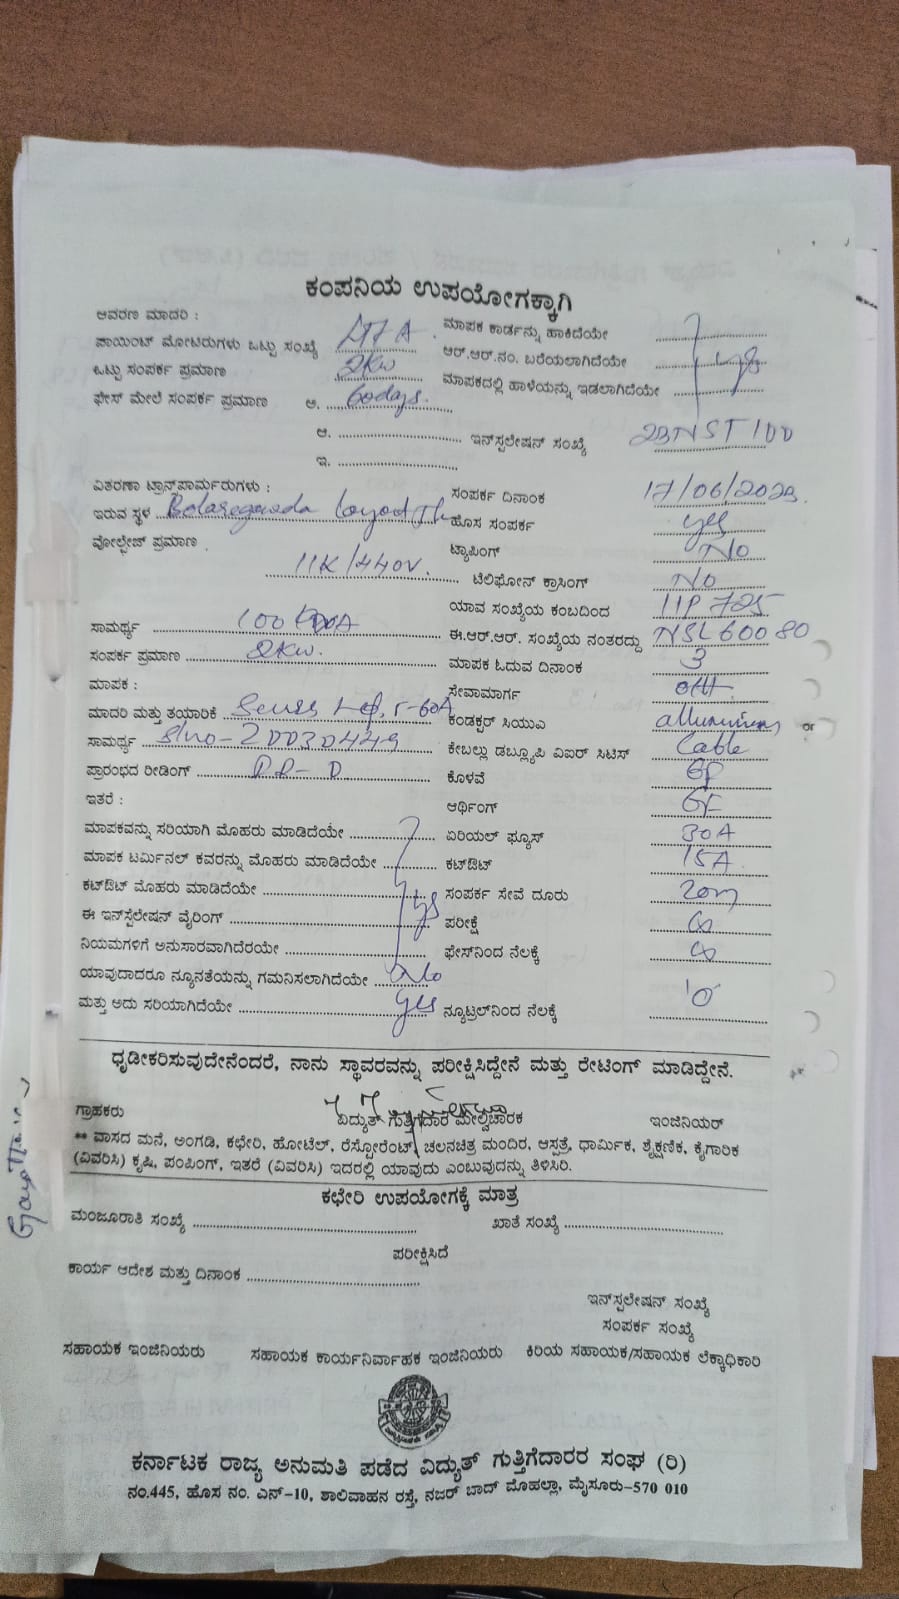 ಕಂಪನಿಯ ಉಪಯೋಗಕ್ಕಾಗಿ
ಆವರಣ ಮಾದರಿ :
ಮಾಪಕ ಕಾರ್ಡನ್ನು ಹಾಕಿದೆಯೇ
ಪಾಯಿಂಟ್ ಮೋಟರುಗಳು ಒಟ್ಟು ಸಂಖ್ಯೆ
ಆರ್.ಆರ್.ನಂ. ಬರೆಯಲಾಗಿದೆಯೇ yes
ಒಟ್ಟು ಸಂಪರ್ಕ ಪ್ರಮಾಣ 2KW
ಮಾಪಕದಲ್ಲಿ ಹಾಳೆಯನ್ನು ಇಡಲಾಗಿದೆಯೇ
ಫೇಸ್ ಮೇಲೆ ಸಂಪರ್ಕ ಪ್ರಮಾಣ ಅ. 60days.
ಆ.
ಇನ್‌ಸ್ಟಲೇಷನ್ ಸಂಖ್ಯೆ 23NST100
ಇ.
ವಿತರಣಾ ಟ್ರಾನ್ಸ್‌ಫಾರ್ಮರುಗಳು :
ಸಂಪರ್ಕ ದಿನಾಂಕ 17/06/2023
ಇರುವ ಸ್ಥಳ
ಹೊಸ ಸಂಪರ್ಕ yes
ವೋಲ್ಟೇಜ್ ಪ್ರಮಾಣ 11K/440V.
ಟ್ಯಾಪಿಂಗ್ NO
ಟೆಲಿಫೋನ್ ಕ್ರಾಸಿಂಗ್ NO
ಯಾವ ಸಂಖ್ಯೆಯ ಕಂಬದಿಂದ 11P 725
ಸಾಮರ್ಥ್ಯ 100
ಈ.ಆರ್.ಆರ್. ಸಂಖ್ಯೆಯ ನಂತರದ್ದು NSL60080
ಸಂಪರ್ಕ ಪ್ರಮಾಣ 2KW.
ಮಾಪಕ ಓದುವ ದಿನಾಂಕ 3
ಮಾಪಕ :
ಸೇವಾಮಾರ್ಗ OH
ಮಾದರಿ ಮತ್ತು ತಯಾರಿಕೆ 5-60A
ಕಂಡಕ್ಟರ್ ಸಿಯುಎ alluminium or
ಸಾಮರ್ಥ್ಯ S/no-20030449
ಕೇಬಲ್ಲು ಡಬ್ಲ್ಯೂಪಿ ವಿಐಆರ್ ಸಿಟಿಸ್ Cable
ಪ್ರಾರಂಭದ ರೀಡಿಂಗ್
ಕೊಳವೆ GP
ಇತರೆ :
ಆರ್ಥಿಂಗ್ GE
ಮಾಪಕವನ್ನು ಸರಿಯಾಗಿ ಮೊಹರು ಮಾಡಿದೆಯೇ
ಏರಿಯಲ್ ಫ್ಯೂಸ್ 30A
ಮಾಪಕ ಟರ್ಮಿನಲ್ ಕವರನ್ನು ಮೊಹರು ಮಾಡಿದೆಯೇ
ಕಟ್‌ಔಟ್ 15A
ಕಟ್‌ಔಟ್ ಮೊಹರು ಮಾಡಿದೆಯೇ yes
ಸಂಪರ್ಕ ಸೇವೆ ದೂರು 20m
ಈ ಇನ್‌ಸ್ಟೆಲೇಷನ್ ವೈರಿಂಗ್
ಪರೀಕ್ಷೆ ∞
ನಿಯಮಗಳಿಗೆ ಅನುಸಾರವಾಗಿದೆರಯೇ
ಫೇಸ್‌ನಿಂದ ನೆಲಕ್ಕೆ ∞
ಯಾವುದಾದರೂ ನ್ಯೂನತೆಯನ್ನು ಗಮನಿಸಲಾಗಿದೆಯೇ No
ಮತ್ತು ಅದು ಸರಿಯಾಗಿದೆಯೇ yes
ನ್ಯೂಟ್ರಲ್‌ನಿಂದ ನೆಲಕ್ಕೆ '0'
ಧೃಡೀಕರಿಸುವುದೇನೆಂದರೆ, ನಾನು ಸ್ಥಾವರವನ್ನು ಪರೀಕ್ಷಿಸಿದ್ದೇನೆ ಮತ್ತು ರೇಟಿಂಗ್ ಮಾಡಿದ್ದೇನೆ.
ಗ್ರಾಹಕರು
ವಿದ್ಯುತ್ ಗುತ್ತಿಗೆದಾರ ಮೇಲ್ವಿಚಾರಕ
ಇಂಜಿನಿಯರ್
** ವಾಸದ ಮನೆ, ಅಂಗಡಿ, ಕಛೇರಿ, ಹೋಟೆಲ್, ರೆಸ್ಟೋರೆಂಟ್, ಚಲನಚಿತ್ರ ಮಂದಿರ, ಆಸ್ಪತ್ರೆ, ಧಾರ್ಮಿಕ, ಶೈಕ್ಷಣಿಕ, ಕೈಗಾರಿಕ
(ವಿವರಿಸಿ) ಕೃಷಿ, ಪಂಪಿಂಗ್, ಇತರೆ (ವಿವರಿಸಿ) ಇದರಲ್ಲಿ ಯಾವುದು ಎಂಬುವುದನ್ನು ತಿಳಿಸಿರಿ.
ಕಛೇರಿ ಉಪಯೋಗಕ್ಕೆ ಮಾತ್ರ
ಮಂಜೂರಾತಿ ಸಂಖ್ಯೆ
ಖಾತೆ ಸಂಖ್ಯೆ
ಪರೀಕ್ಷಿಸಿದೆ
ಕಾರ್ಯ ಆದೇಶ ಮತ್ತು ದಿನಾಂಕ
ಇನ್‌ಸ್ಟಲೇಷನ್ ಸಂಖ್ಯೆ
ಸಂಪರ್ಕ ಸಂಖ್ಯೆ
ಸಹಾಯಕ ಇಂಜಿನಿಯರು
ಸಹಾಯಕ ಕಾರ್ಯನಿರ್ವಾಹಕ ಇಂಜಿನಿಯರು
ಕಿರಿಯ ಸಹಾಯಕ/ಸಹಾಯಕ ಲೆಕ್ಕಾಧಿಕಾರಿ
ಕರ್ನಾಟಕ ರಾಜ್ಯ ಅನುಮತಿ ಪಡೆದ ವಿದ್ಯುತ್ ಗುತ್ತಿಗೆದಾರರ ಸಂಘ (ರಿ)
ನಂ.445, ಹೊಸ ನಂ. ಎನ್-10, ಶಾಲಿವಾಹನ ರಸ್ತೆ, ನಜರ್ ಬಾದ್ ಮೊಹಲ್ಲಾ, ಮೈಸೂರು-570 010